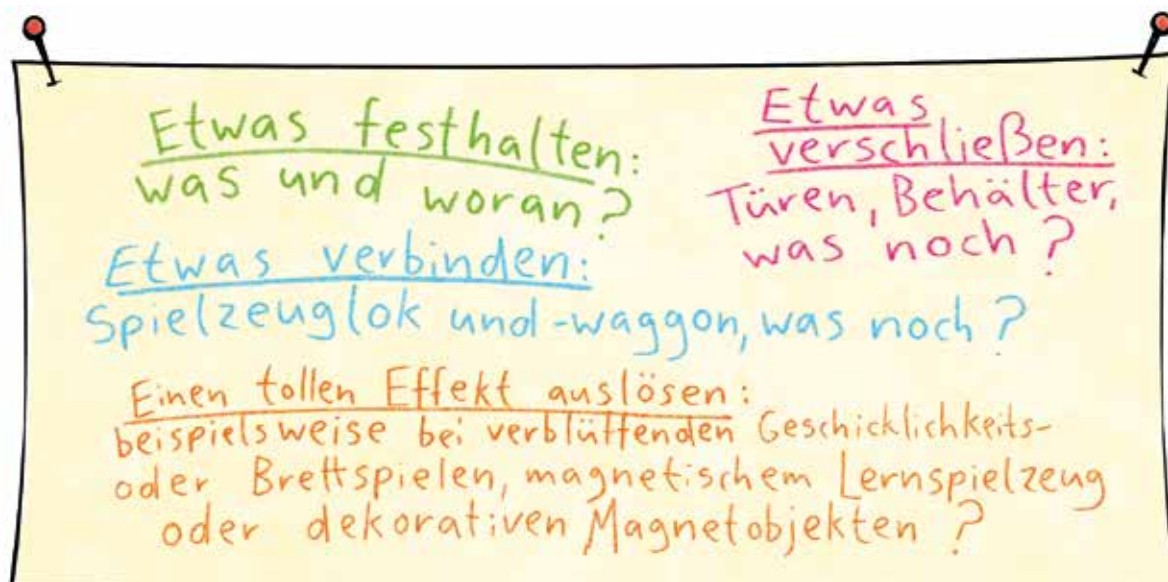 Etwas festhalten:
was und woran?
Etwas
verschließen:
Türen, Behälter,
was noch?
Etwas verbinden:
Spielzeuglok und -waggon, was noch?
Einen tollen Effekt auslösen:
beispielsweise bei verblüffenden Geschicklichkeits-
oder Brettspielen, magnetischem Lernspielzeug
oder dekorativen Magnetobjekten?